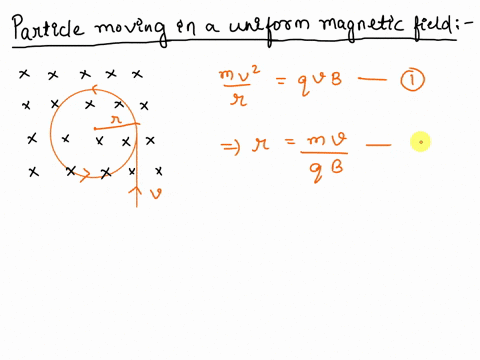 Particle moving in a uniform magnetic field:-
x x x x x
x x x x x
r
x x x x x
x x x x x
v
mv²/r = qvB — ①
⇒ r = mv/qB —